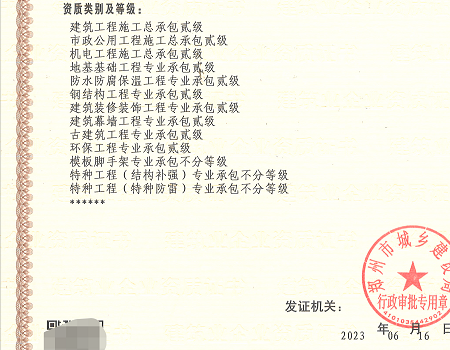 资质类别及等级：
建筑工程施工总承包贰级
市政公用工程施工总承包贰级
机电工程施工总承包贰级
地基基础工程专业承包贰级
防水防腐保温工程专业承包贰级
钢结构工程专业承包贰级
建筑装修装饰工程专业承包贰级
建筑幕墙工程专业承包贰级
古建筑工程专业承包贰级
环保工程专业承包贰级
模板脚手架专业承包不分等级
特种工程（结构补强）专业承包不分等级
特种工程（特种防雷）专业承包不分等级
******
郑州市城乡建设局
行政审批专用章
发证机关：
2023 年 06 月 16 日